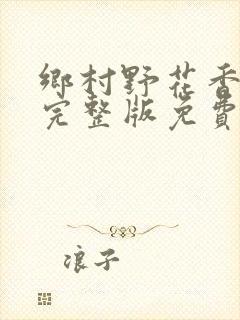 鄉村野花香
完整版免費
浪子